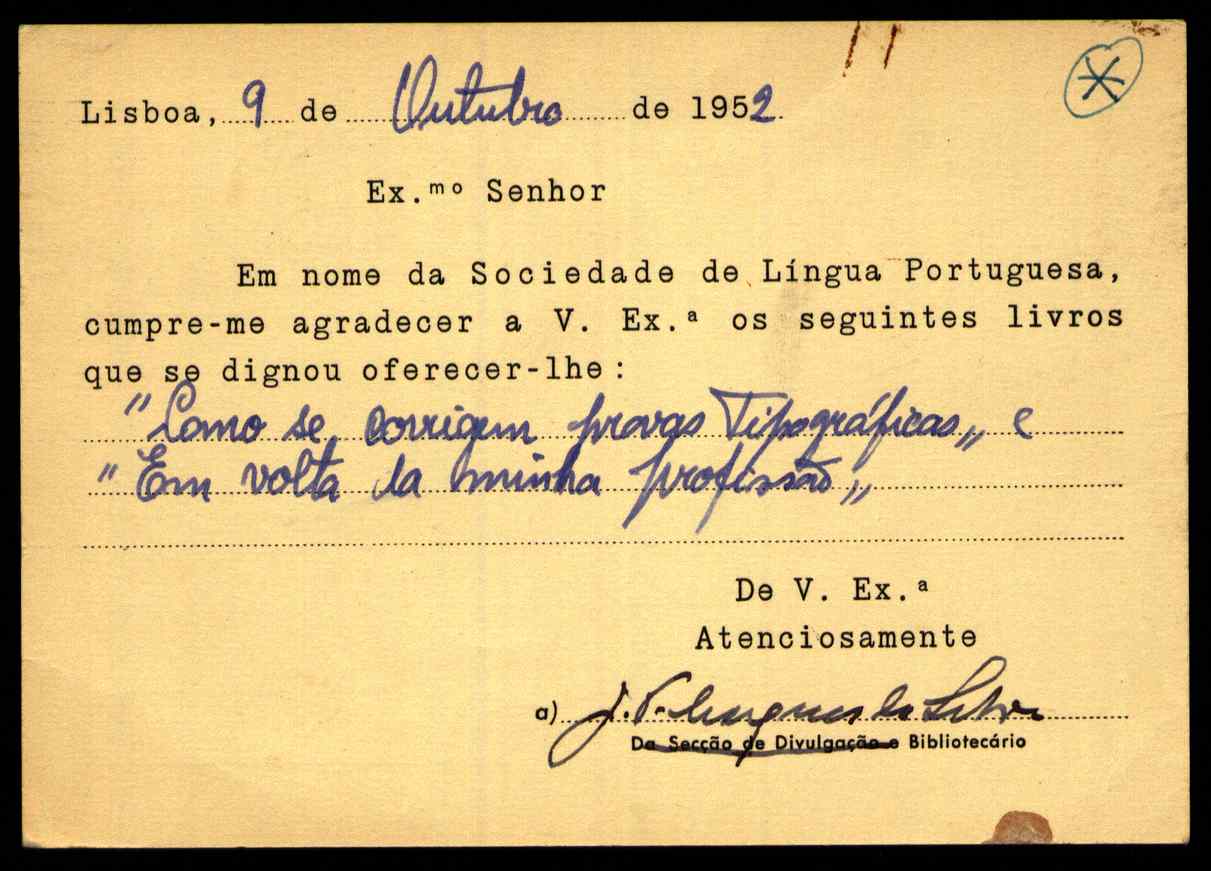 Lisboa, 9 de Outubro de 1952.
Ex.ᵐᵒ Senhor
Em nome da Sociedade de Língua Portuguesa,
cumpre-me agradecer a V. Ex.ª os seguintes livros
que se dignou oferecer-lhe:
"Como se corrigem provas Tipográficas„ e
"Em volta da minha profissão„
De V. Ex.ª
Atenciosamente
a) J. P. Marques da Silva
Da Secção de Divulgação e Bibliotecário